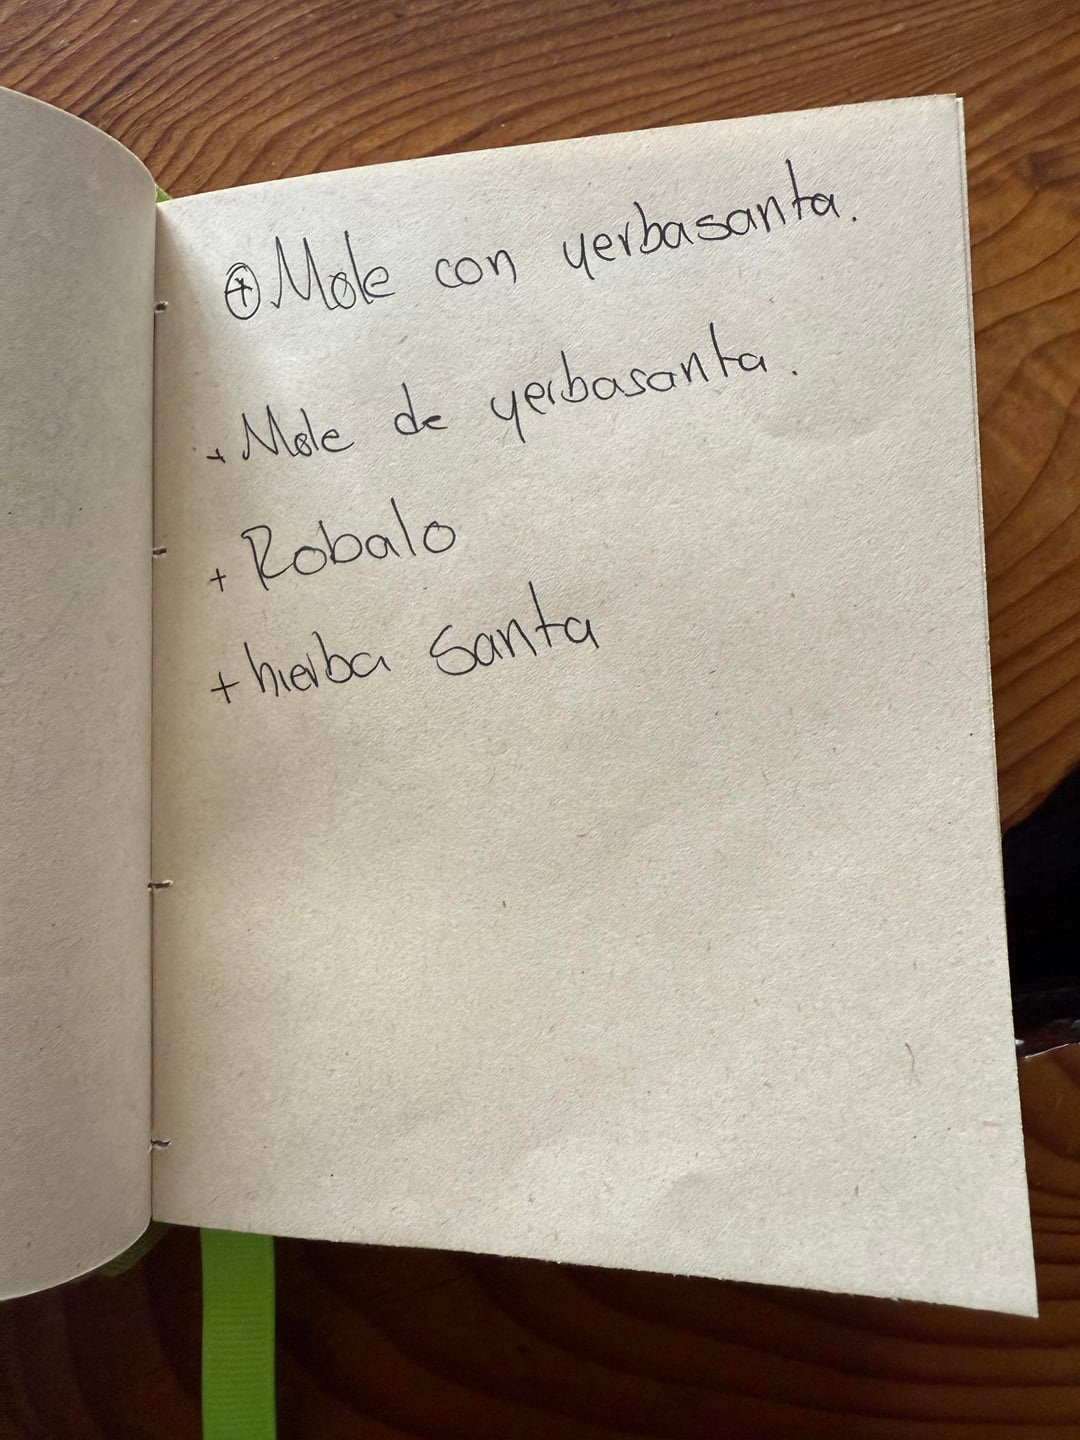 ⊕ Mole con yerbasanta.
+ Mole de yerbasanta.
+ Robalo
+ hierba santa